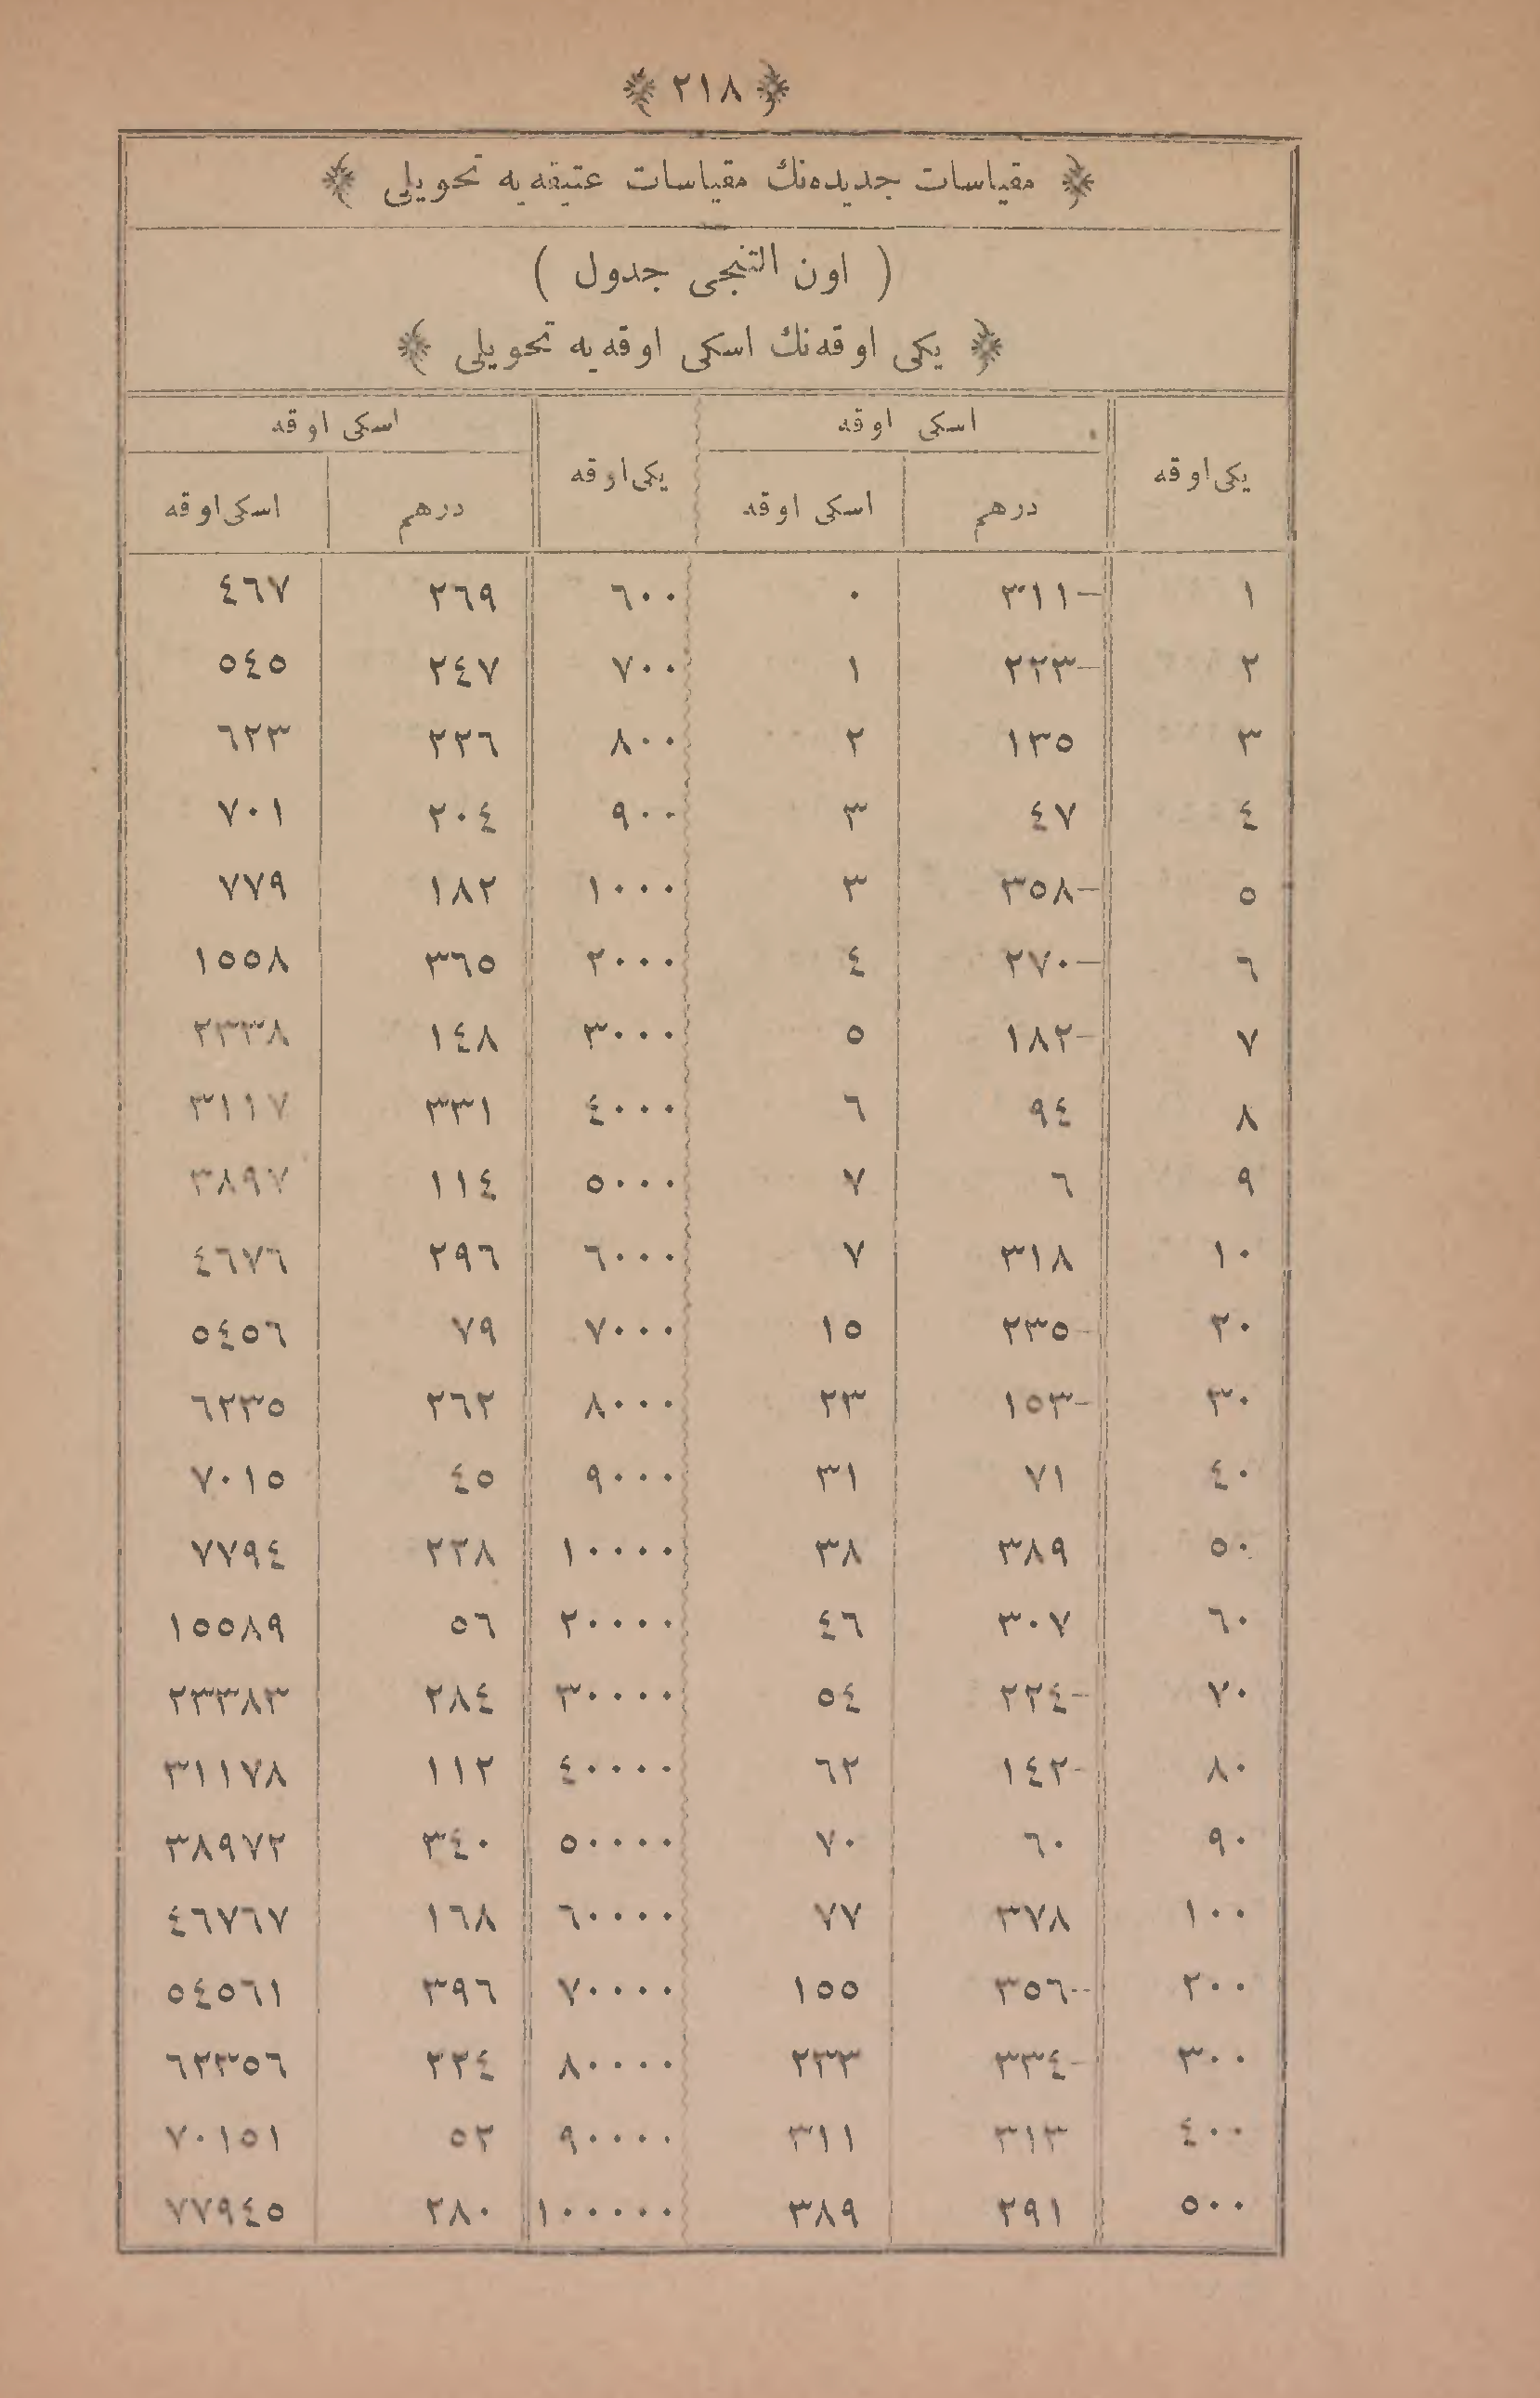 ﴿ ٢١٨ ﴾
﴿ مقياسات جديده‌نك مقياسات عتيقه‌يه تحويلى ﴾
( اون التنجى جدول )
﴿ يكى اوقه‌نك اسكى اوقه‌يه تحويلى ﴾
يكى اوقه اسكى اوقه يكى اوقه اسكى اوقه
درهم اسكى اوقه درهم اسكى اوقه
١ ٣١١- ٠ ٦٠٠ ٢٦٩ ٤٦٧
٢ ٢٢٣- ١ ٧٠٠ ٢٤٧ ٥٤٥
٣ ١٣٥ ٢ ٨٠٠ ٢٢٦ ٦٢٣
٤ ٤٧ ٣ ٩٠٠ ٢٠٤ ٧٠١
٥ ٣٥٨- ٣ ١٠٠٠ ١٨٢ ٧٧٩
٦ ٢٧٠- ٤ ٢٠٠٠ ٣٦٥ ١٥٥٨
٧ ١٨٢- ٥ ٣٠٠٠ ١٤٨ ٢٣٣٨
٨ ٩٤ ٦ ٤٠٠٠ ٣٣١ ٣١١٧
٩ ٦ ٧ ٥٠٠٠ ١١٤ ٣٨٩٧
١٠ ٣١٨ ٧ ٦٠٠٠ ٢٩٦ ٤٦٧٦
٢٠ ٢٣٥- ١٥ ٧٠٠٠ ٧٩ ٥٤٥٦
٣٠ ١٥٣- ٢٣ ٨٠٠٠ ٢٦٢ ٦٢٣٥
٤٠ ٧١ ٣١ ٩٠٠٠ ٤٥ ٧٠١٥
٥٠ ٣٨٩ ٣٨ ١٠٠٠٠ ٢٢٨ ٧٧٩٤
٦٠ ٣٠٧ ٤٦ ٢٠٠٠٠ ٥٦ ١٥٥٨٩
٧٠ ٢٢٤- ٥٤ ٣٠٠٠٠ ٢٨٤ ٢٣٣٨٣
٨٠ ١٤٢- ٦٢ ٤٠٠٠٠ ١١٢ ٣١١٧٨
٩٠ ٦٠ ٧٠ ٥٠٠٠٠ ٣٤٠ ٣٨٩٧٢
١٠٠ ٣٧٨ ٧٧ ٦٠٠٠٠ ١٦٨ ٤٦٧٦٧
٢٠٠ ٣٥٦- ١٥٥ ٧٠٠٠٠ ٣٩٦ ٥٤٥٦١
٣٠٠ ٣٣٤- ٢٣٣ ٨٠٠٠٠ ٢٢٤ ٦٢٣٥٦
٤٠٠ ٣١٣ ٣١١ ٩٠٠٠٠ ٥٢ ٧٠١٥١
٥٠٠ ٢٩١ ٣٨٩ ١٠٠٠٠٠ ٢٨٠ ٧٧٩٤٥